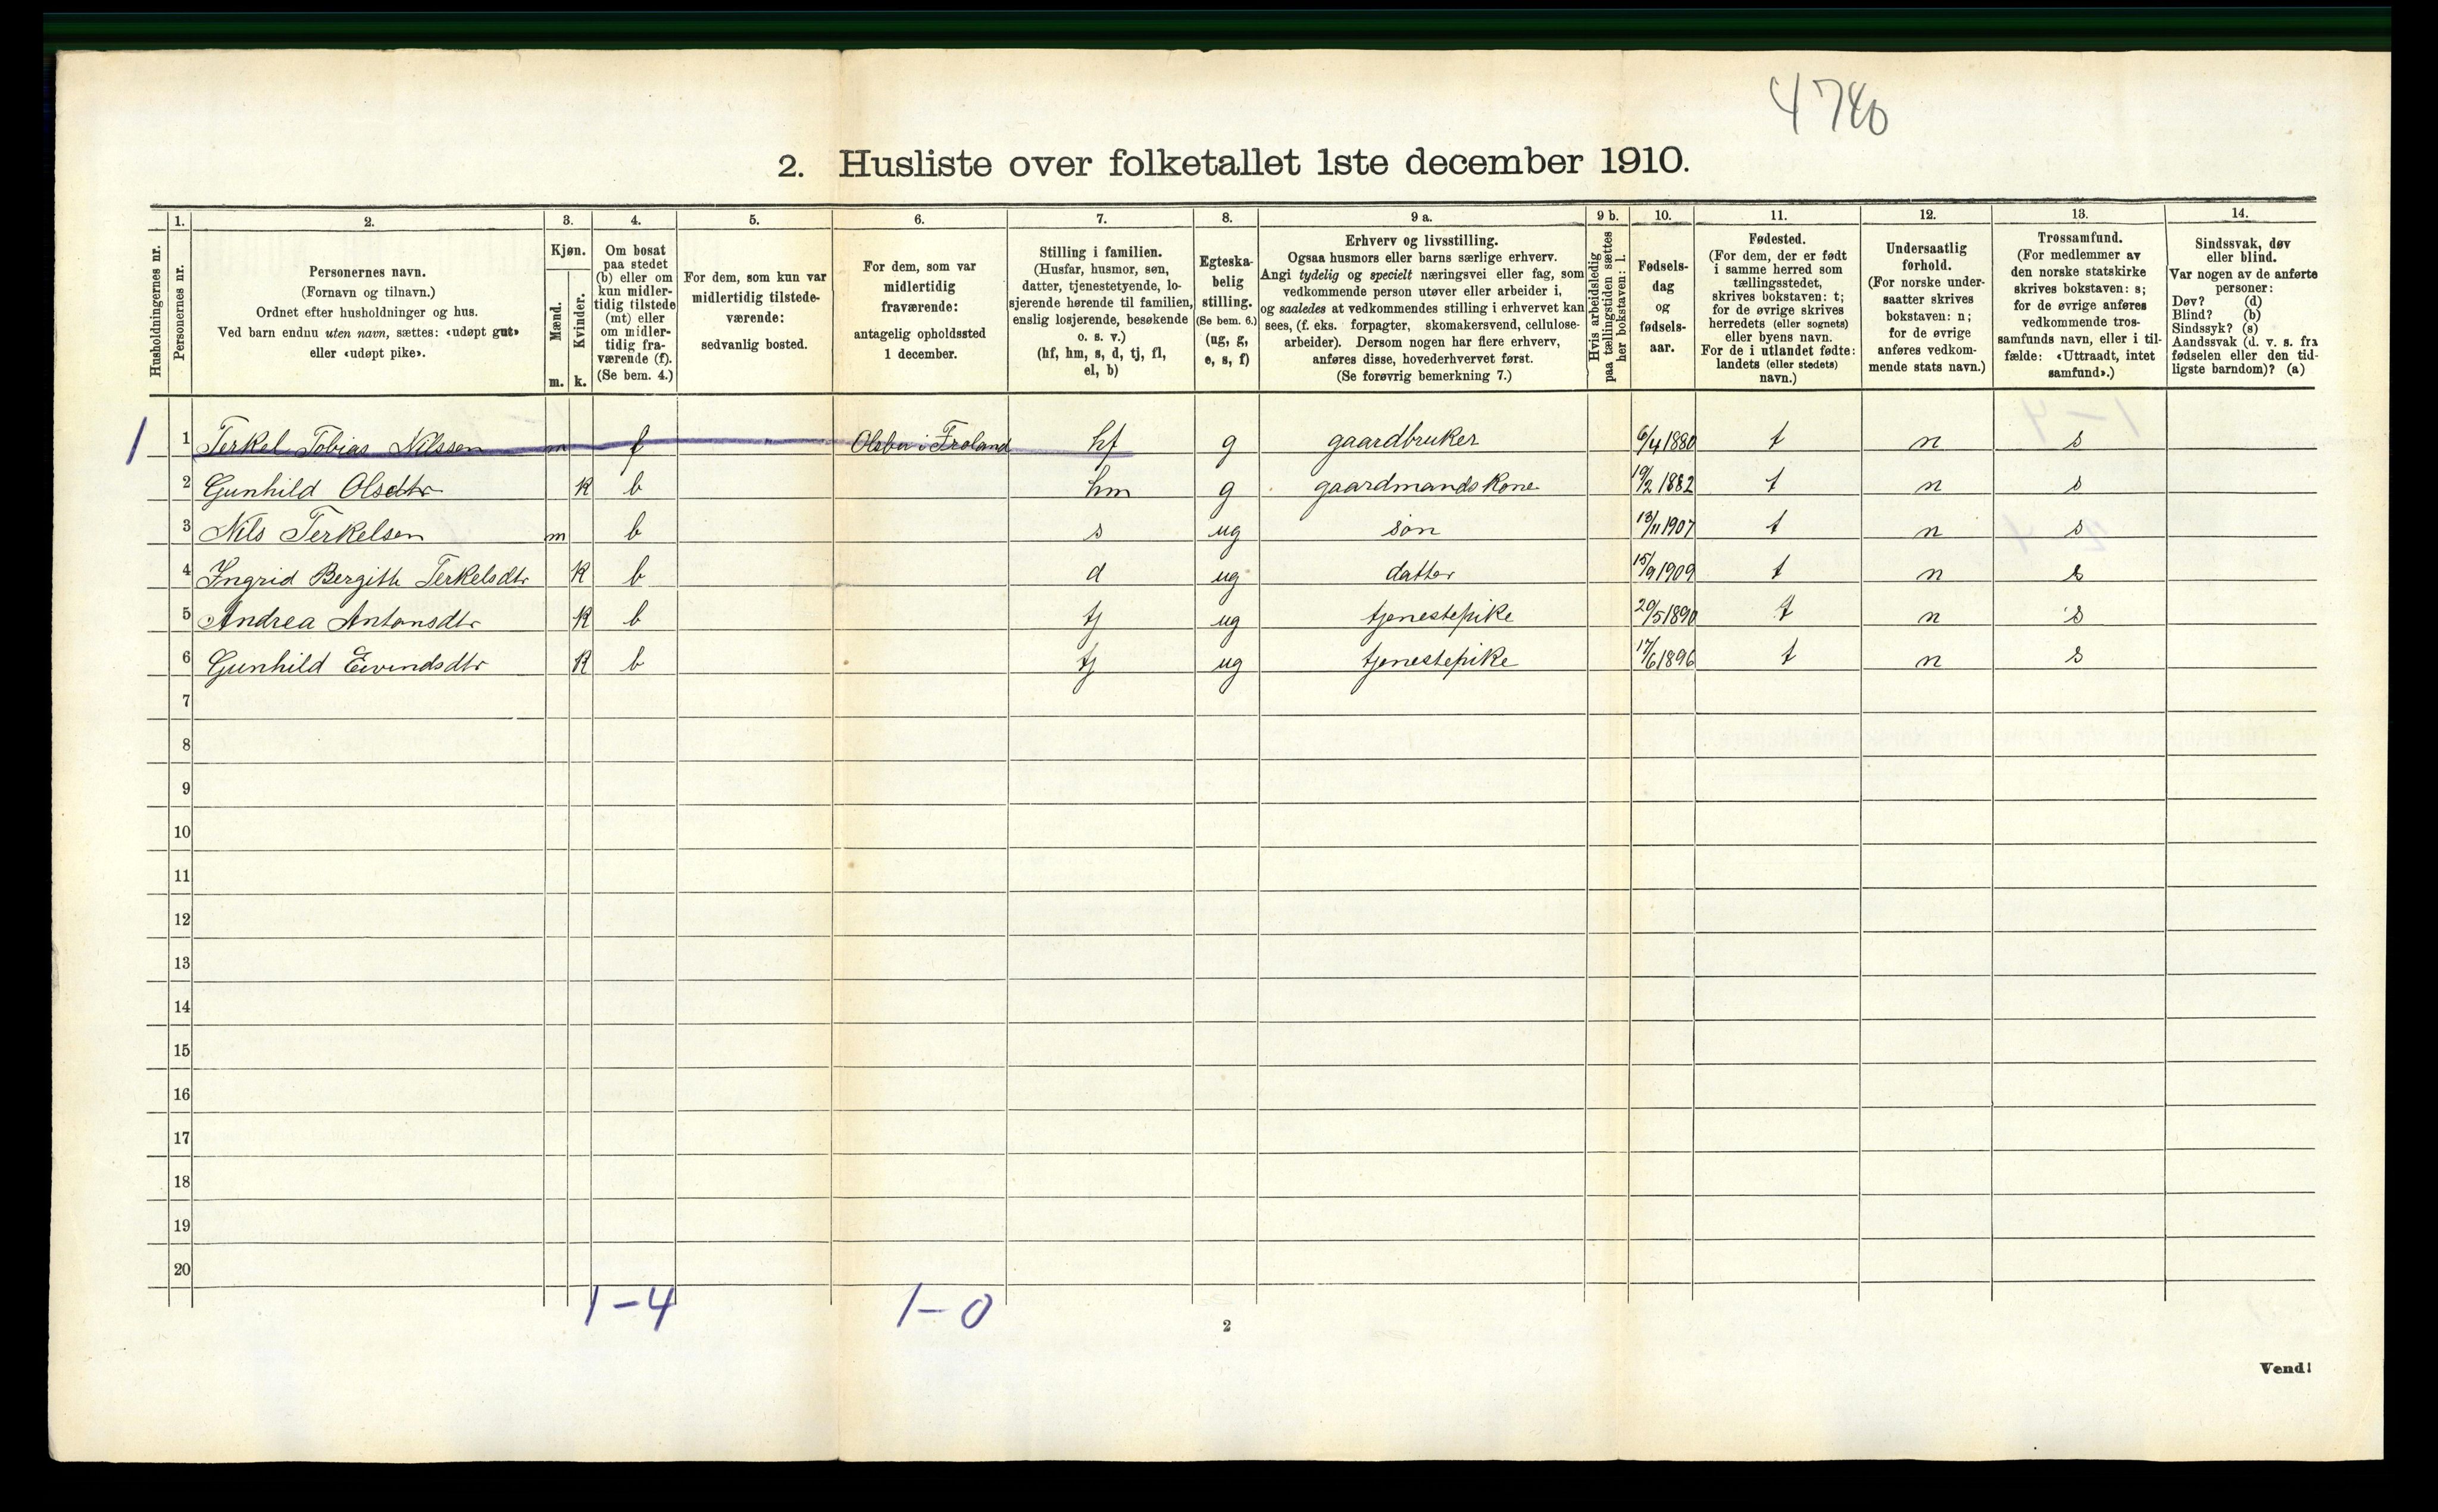 4780
2. Husliste over folketallet 1ste december 1910.
Husholdningernes nr.
1.
Personernes nr.
2.
Personernes navn.
(Fornavn og tilnavn.)
Ordnet efter husholdninger og hus.
Ved barn endnu uten navn, sættes: «udøpt gut»
eller «udøpt pike».
3.
Kjøn.
Mænd.
Kvinder.
m. k.
4.
Om bosat
paa stedet
(b) eller om
kun midler-
tidig tilstede
(mt) eller
om midler-
tidig fra-
værende (f).
(Se bem. 4.)
5.
For dem, som kun var
midlertidig tilstede-
værende:
sedvanlig bosted.
6.
For dem, som var
midlertidig
fraværende:
antagelig opholdssted
1 december.
7.
Stilling i familien.
(Husfar, husmor, søn,
datter, tjenestetyende, lo-
sjerende hørende til familien,
enslig losjerende, besøkende
o. s. v.)
(hf, hm, s, d, tj, fl,
el, b)
8.
Egteska-
belig
stilling.
(Se bem. 6.)
(ug, g,
e, s, f)
9 a.
Erhverv og livsstilling.
Ogsaa husmors eller barns særlige erhverv.
Angi tydelig og specielt næringsvei eller fag, som
vedkommende person utøver eller arbeider i,
og saaledes at vedkommendes stilling i erhvervet kan
sees, (f. eks. forpagter, skomakersvend, cellulose-
arbeider). Dersom nogen har flere erhverv,
anføres disse, hovederhvervet først.
(Se forøvrig bemerkning 7.)
9 b.
Hvis arbeidsledig
paa tællingstiden sættes
her bokstaven: l.
10.
Fødsels-
dag
og
fødsels-
aar.
11.
Fødested.
(For dem, der er født
i samme herred som
tællingsstedet,
skrives bokstaven: t;
for de øvrige skrives
herredets (eller sognets)
eller byens navn.
For de i utlandet fødte:
landets (eller stedets)
navn.)
12.
Undersaatlig
forhold.
(For norske under-
saatter skrives
bokstaven: n;
for de øvrige
anføres vedkom-
mende stats navn.)
13.
Trossamfund.
(For medlemmer av
den norske statskirke
skrives bokstaven: s;
for de øvrige anføres
vedkommende tros-
samfunds navn, eller i til-
fælde: «Uttraadt, intet
samfund».)
14.
Sindssvak, døv
eller blind.
Var nogen av de anførte
personer:
Døv? (d)
Blind? (b)
Sindssyk? (s)
Aandssvak (d. v. s. fra
fødselen eller den tid-
ligste barndom)? (a)
1 1 Terkel Tobias Nilssen m f Olsbu i Froland hf g gaardbruker 6/4 1880 t n s
2 Gunhild Olsdtr K b hm g gaardmandskone 19/2 1882 t n s
3 Nils Terkelsen m b s ug søn 13/11 1907 t n s
4 Ingrid Bergith Terkelsdtr K b d ug datter 15/9 1909 t n s
5 Andrea Antonsdtr K b tj ug tjenestepike 20/5 1890 t n s
6 Gunhild Eivindsdtr K b tj ug tjenestepike 17/6 1896 t n s
7
8
9
10
11
12
13
14
15
16
17
18
19
20
1-4 1-0
2
Vend!